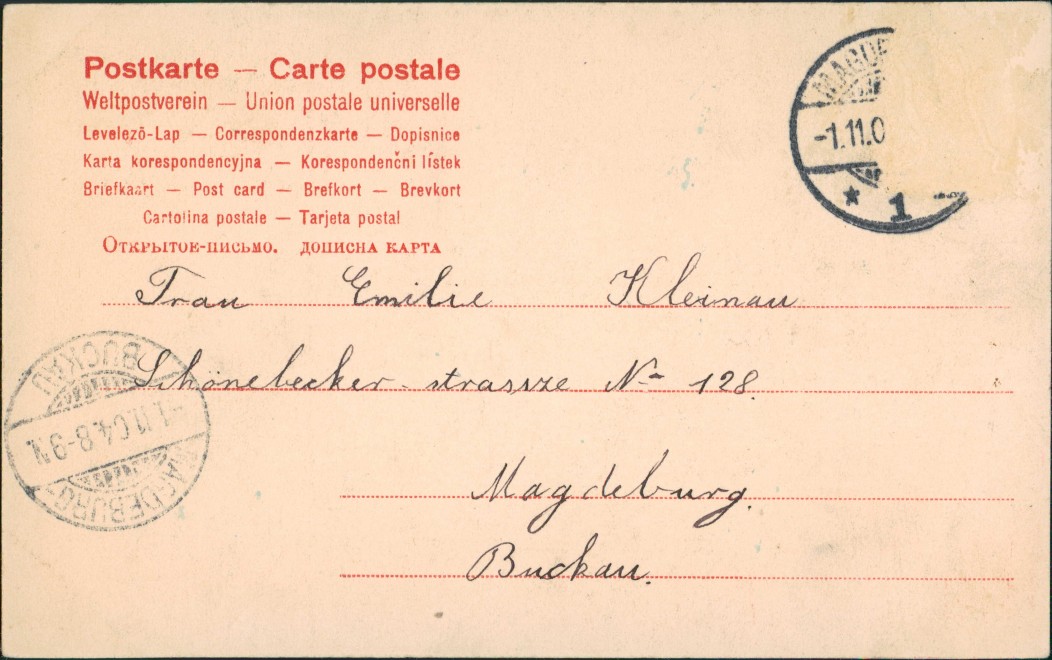 Postkarte — Carte postale
Weltpostverein — Union postale universelle
Levelező-Lap — Correspondenzkarte — Dopisnice
Karta korespondencyjna — Korespondenčni lístek
Briefkaart — Post card — Brefkort — Brevkort
Cartolina postale — Tarjeta postal
Открытое-письмо. дописна карта
MAGDE
-1.11.0
* 1
Frau Emilie Kleinau
Schönebecker-strassze No 128.
Magdeburg.
Buckau.
MAGDEBURG-
-1.11.04.8-9 V.
BUCKAU